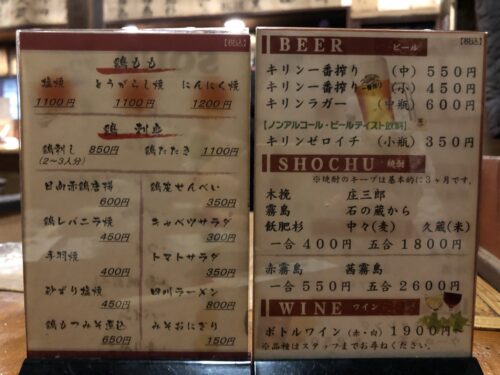 【税込】
鶏もも
塩焼 とうがらし焼 にんにく焼
1100円 1100円 1200円
鶏刺身
鶏刺し 850円 鶏たたき 1100円
(2〜3人分)
日南赤鶏唐揚 鶏皮せんべい
600円 350円
鶏レバニラ焼 キャベツサラダ
450円 300円
手羽焼 トマトサラダ
400円 350円
砂ずり塩焼 四川ラーメン
450円 800円
鶏もつみそ煮込 みそおにぎり
650円 150円
【税込】
BEER ビール
キリン一番搾り (中) 550円
キリン一番搾り (小) 450円
キリンラガー (中瓶) 600円
【ノンアルコール・ビールテイスト飲料】
キリンゼロイチ (小瓶) 350円
SHOCHU 焼酎
※焼酎のキープは基本的に3ヶ月です。
木挽 庄三郎
霧島 石の蔵から
飫肥杉 中々(麦) 久蔵(米)
一合 400円 五合 1800円
赤霧島 茜霧島
一合 550円 五合 2600円
WINE ワイン
ボトルワイン (赤・白) 1900円〜
※品種はスタッフまでお尋ねください。